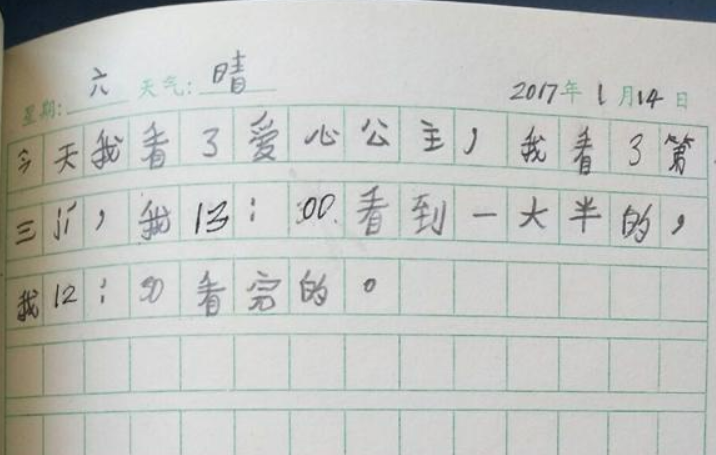 星期: 六 天气: 晴 2017年1月14日
今天我看了爱心公主，我看了第
三，我13:00看到一大半的，
我12:50看完的。